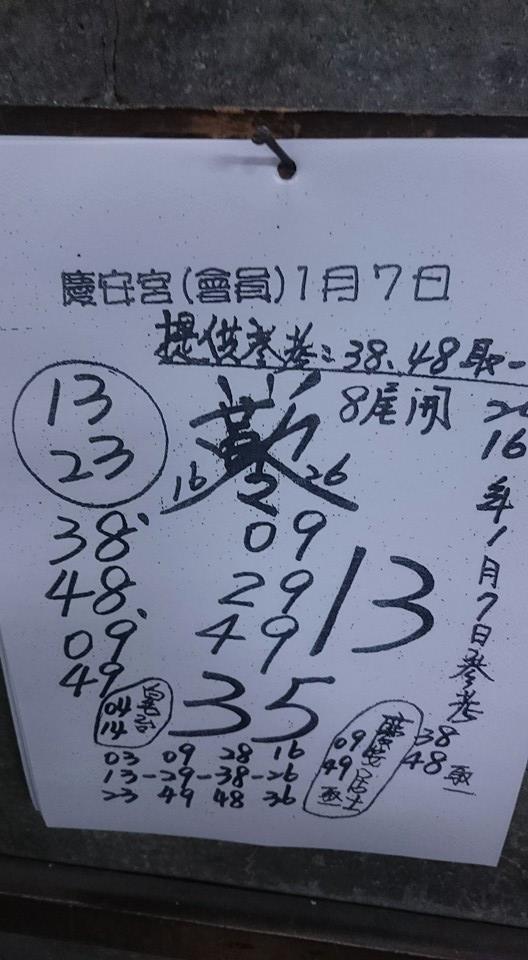 慶安宮(會員)1月7日
提供參考:38、48取一
8尾開
13
23
16 2 26
38、
48、
09
49
09
29
49
13
35
04
14
2016年1月7日參考
38
48取一
09
49
居士
03 09 28 16
13-29-38-26
23 49 48 36